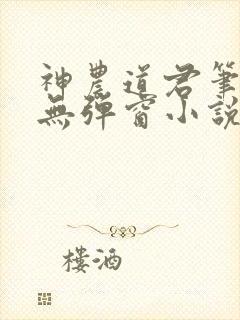 神農道君筆
無彈窗小說
樓酒